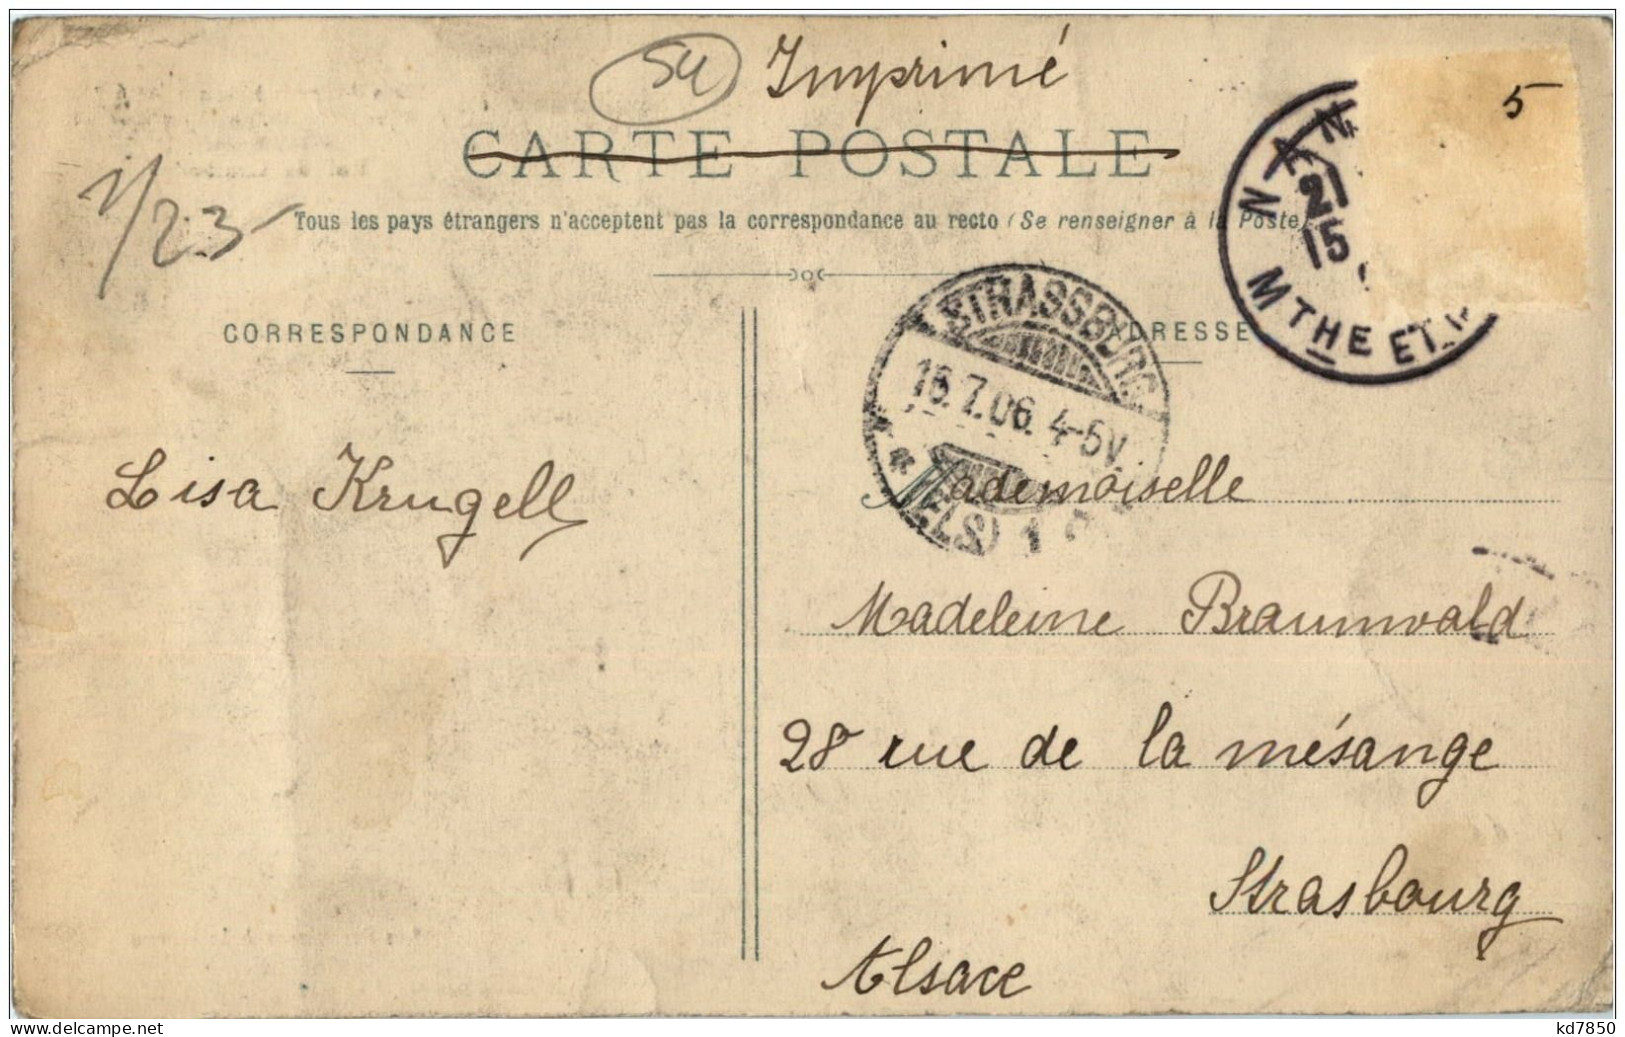 54 Imprimé
5
CARTE POSTALE
1/23
Tous les pays étrangers n'acceptent pas la correspondance au recto (Se renseigner à la Poste)
NAN
21
15
MTHE ET M
CORRESPONDANCE
ADRESSE
STRASSBURG
16.7.06. 4-5V
* (ELS) 1
Lisa Krugell
Mademoiselle
Madeleine Braunwald
28 rue de la mésange
Strasbourg
Alsace
www.delcampe.net
kd7850